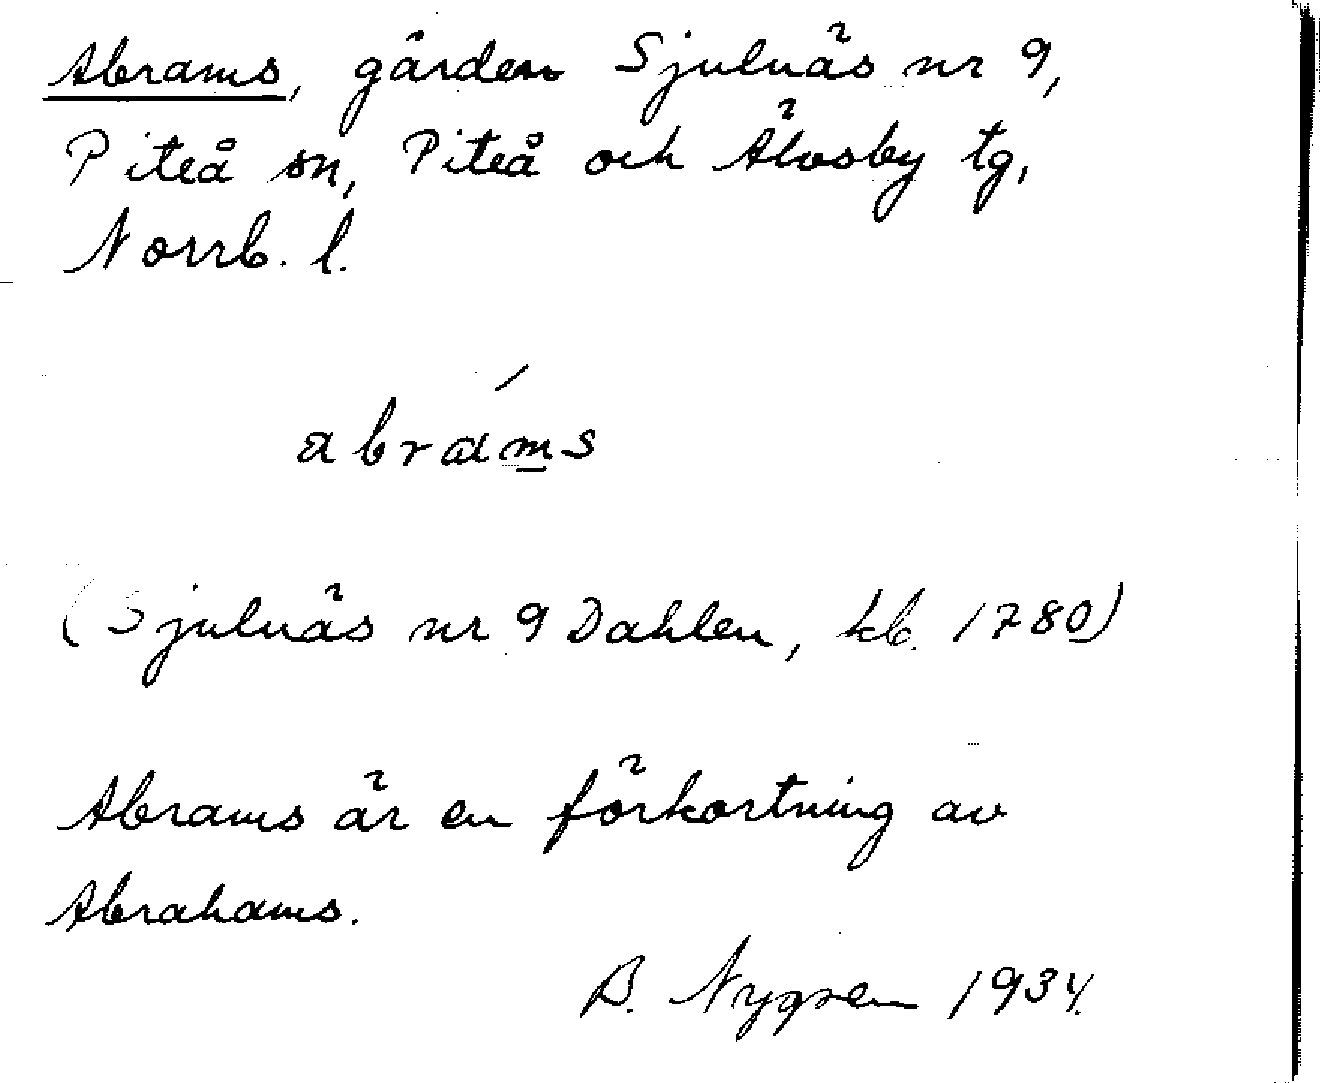 Abrams, gården Sjulnäs nr 9,
Piteå sn, Piteå och Älvsby tg,
Norrb. l.
abrám̲s
(Sjulnäs nr 9 Dahlen, kb. 1780)
Abrams är en förkortning av
Abrahams.
B. Nygren 1934.